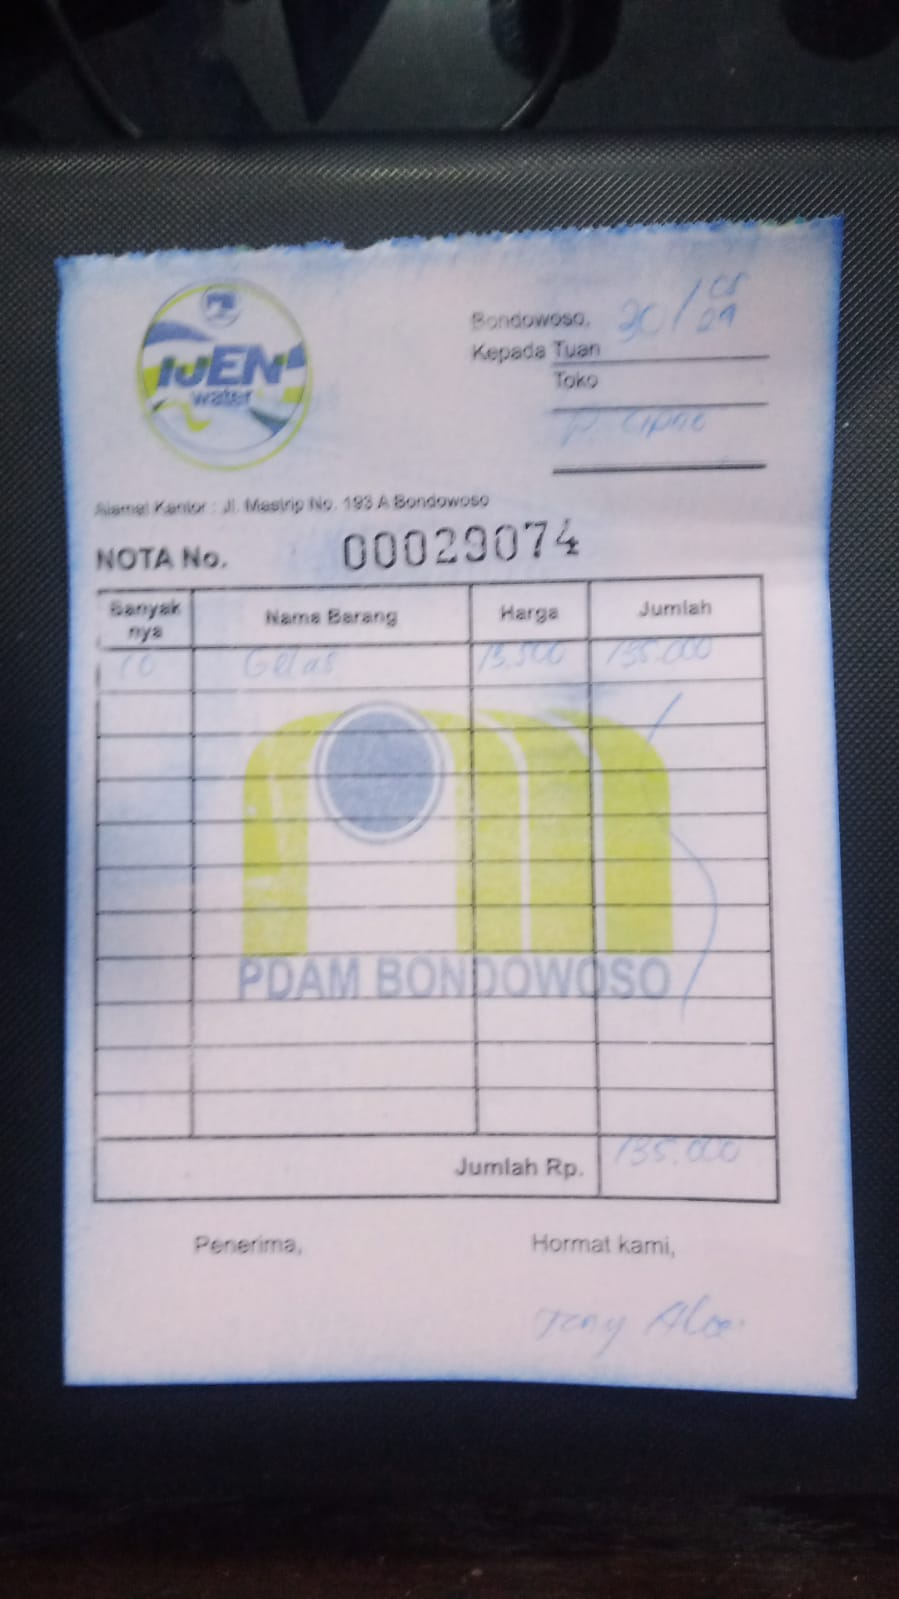 IJEN
water
Bondowoso, 30/05 24
Kepada Tuan
Toko
Alamat Kantor : Jl. Mastrip No. 193 A Bondowoso
NOTA No. 00029074
Banyak nya Nama Barang Harga Jumlah
10 Gelas 13.500 135.000
PDAM BONDOWOSO
Jumlah Rp. 135.000
Penerima, Hormat kami,
Tony